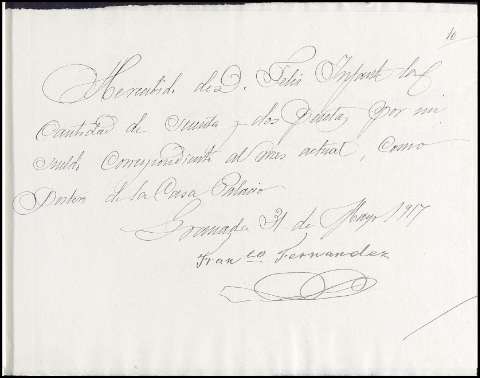 10
He recibido de D. Felix Infante la
Cantidad de treinta y dos pesetas, por mi
sueldo correspondiente al mes actual, como
Portero de la Casa Palacio
Granada 31 de Mayo 1917
Fran co Fernandez